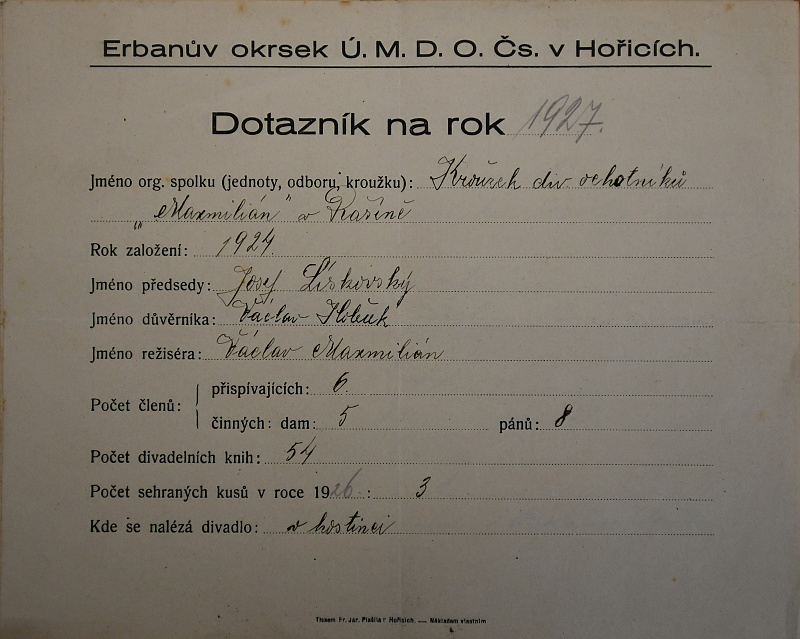 Erbanův okrsek Ú. M. D. O. Čs. v Hořicích.
Dotazník na rok 1927.
Jméno org. spolku (jednoty, odboru, kroužku): Kroužek div. ochotníků
„Maxmilián" v Kašině
Rok založení: 1924.
Jméno předsedy: Josef Lískovský
Jméno důvěrníka: Václav
Jméno režiséra: Václav Maxmilián
Počet členů:
přispívajících: 6.
činných: dam: 5 pánů: 8
Počet divadelních knih: 54
Počet sehraných kusů v roce 1926: 3
Kde se nalézá divadlo: v hostinci
Tiskem Fr. Jar. Plašila v Hořicích. — Nákladem vlastním